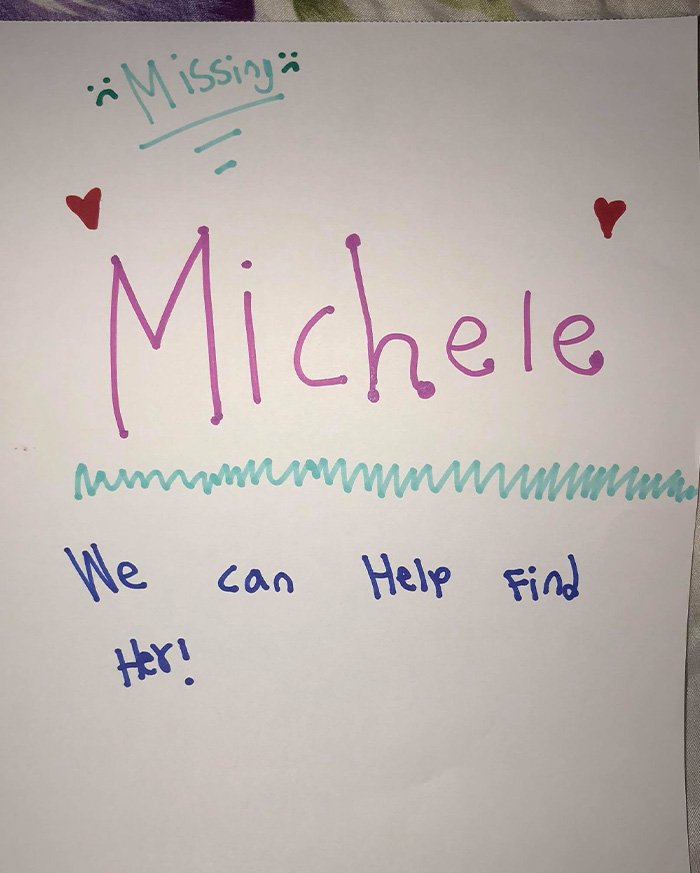 Missing
Michele
We can Help Find
Her!